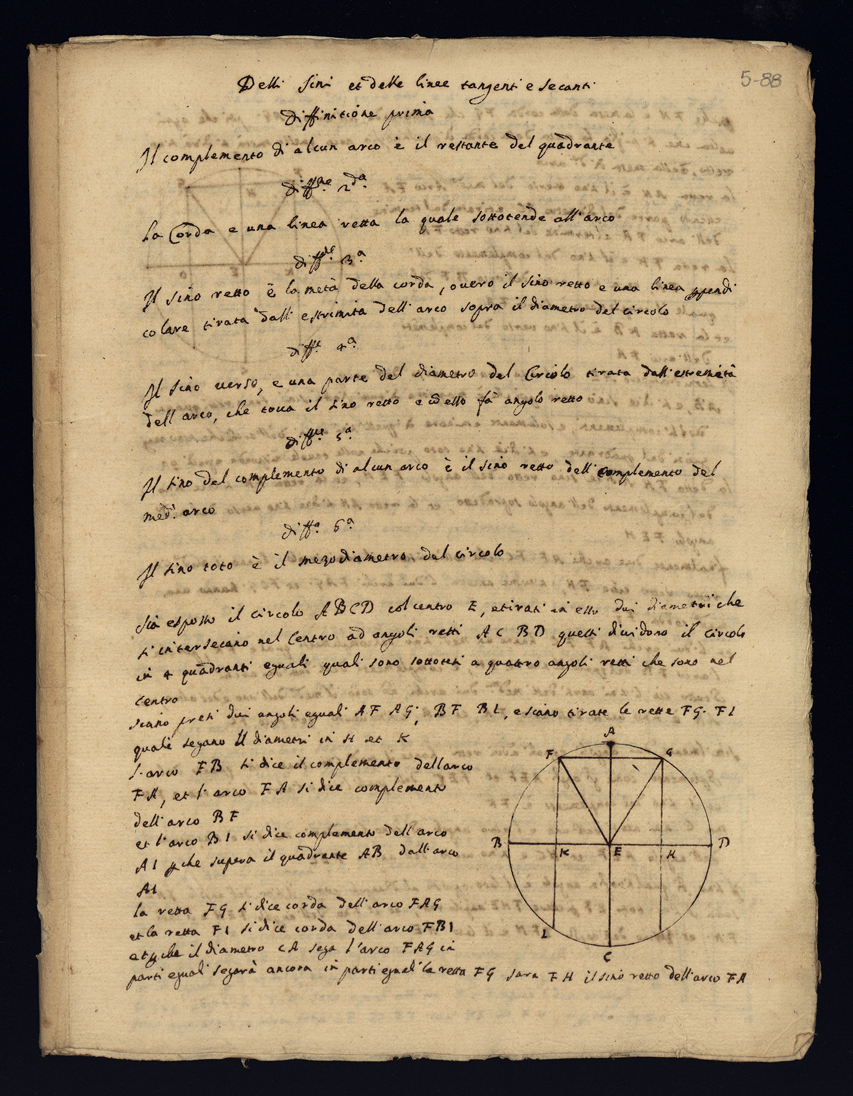 Delli sini et delle linee tangenti e secanti
5-88
diffinitione prima
Il complemento di alcun arco è il restante del quadrante
diff.ne 2.da
La Corda e una linea retta la quale sottotende all'arco
diff.ne 3.a
Il sino retto è la metà della corda, overo il sino retto e una linea ppendi
colare tirata dall'estrimità dell'arco sopra il diametro del circolo
diff.e 4.a
Il sino verso, e una parte del diametro del Circolo tirata dall'estremità
dell'arco, che toca il sino retto e co ello fà angolo retto
diff.ne 5.a
Il sino del complemento di alcun arco è il sino retto dell'complemento del
med.o arco
diff.e 6.a
Il sino toto è il mezodiametro del circolo
Sia esposto il circolo ABCD col centro E, e tirati in esso dui diametri che
s'intersecano nel Centro ad angoli retti AC BD questi dividono il circolo
in 4 quadranti eguali quali sono sottotesi a quattro angoli retti che sono nel
centro
siano presi dui angoli eguali AF AG, BF BI, e siano tirate le rette FG. FI
quale segano li diametri in H et K
l'arco FB si dice il complemento dell'arco
FA, et l'arco FA si dice complemento
dell'arco BF
et l'arco BI si dice complemento dell'arco
AI pche supera il quadrante AB dall'arco
AI
la retta FG si dice corda dell'arco FAG
et la retta FI si dice corda dell'arco FBI
et pche il diametro CA sega l'arco FAG in
parti eguali segarà ancora in parti eguali la retta FG sara FH il sino retto dell'arco FA
A
F
G
B
K
E
H
D
I
C